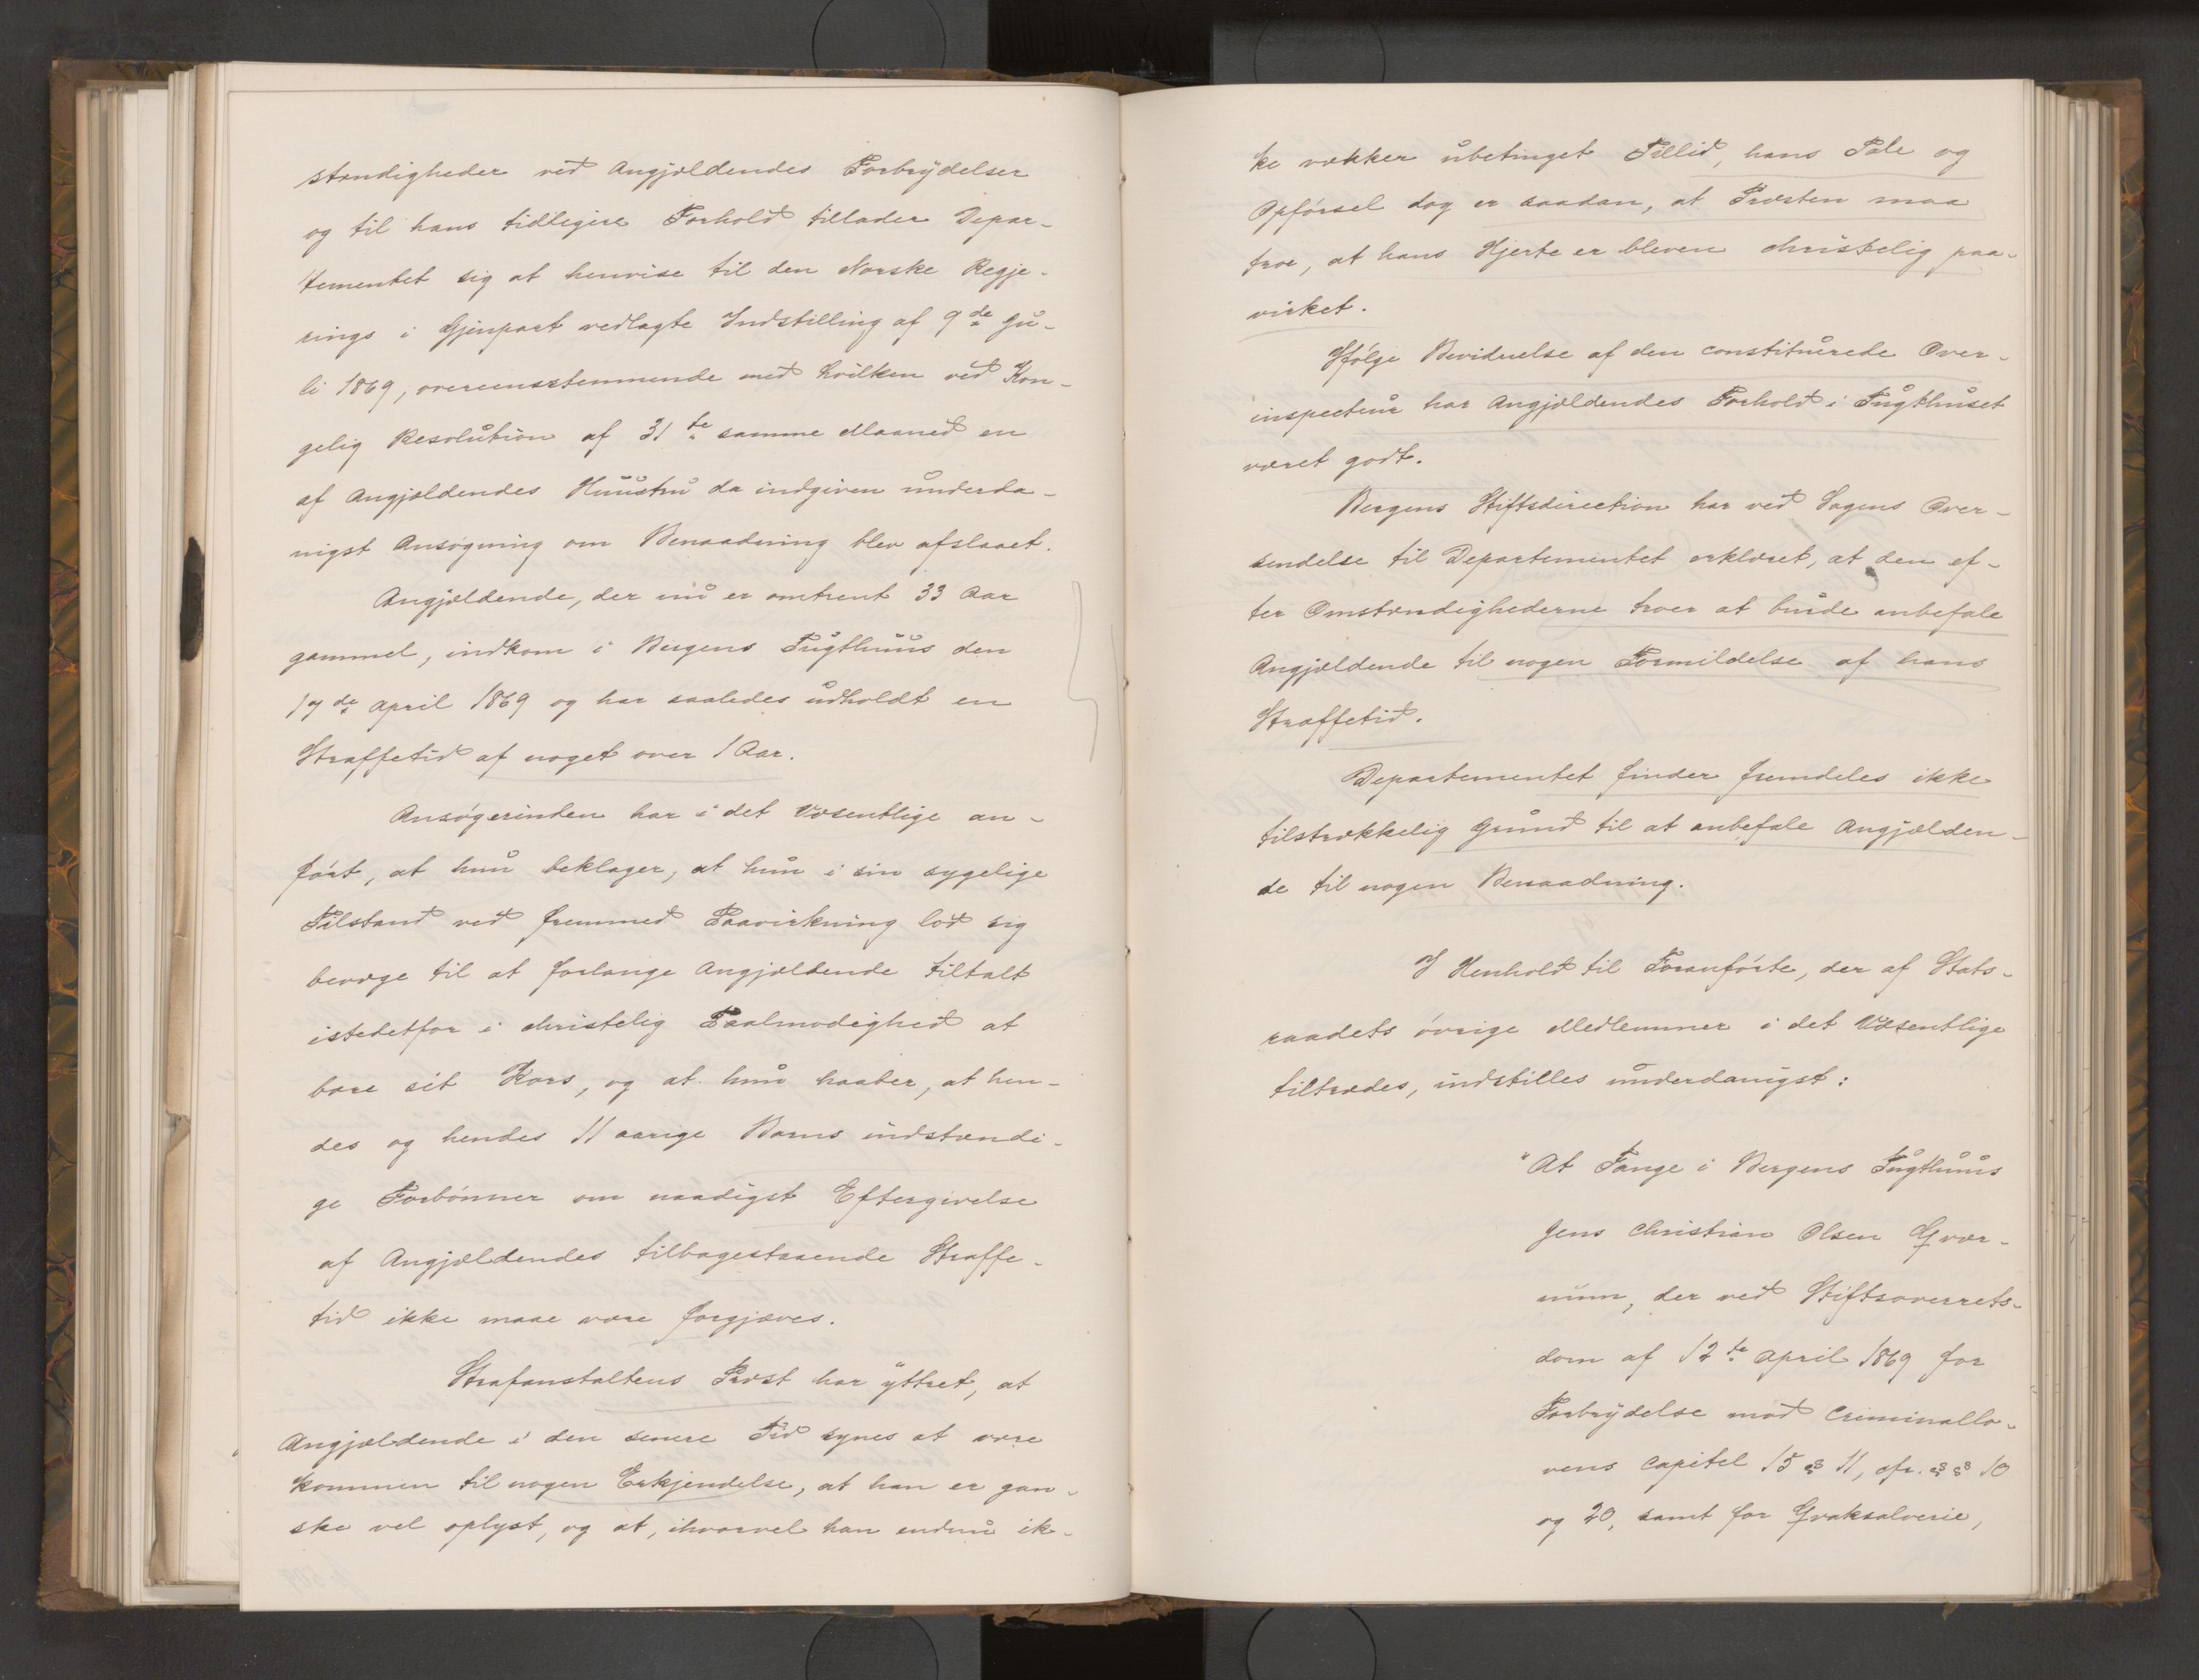 stændigheder ved Angjældendes Forbrydelser
og til hans tidligere Forhold tillader Depar-
tementet sig at henvise til den Norske Regje-
rings i Gjenpart vedlagte Indstilling af 9de Ju-
li 1869, overeensstemmende med hvilken ved Kon-
gelig Resolution af 31te samme Maaned en
af Angjældendes Huustru da indgiven underda-
nigst Ansøgning om Benaadning blev afslaaet.
Angjældende, der nu er omtrent 33 Aar
gammel, indkom i Bergens Tugthuus den
17de April 1869 og har saaledes udholdt en
Straffetid af noget over 1 Aar.
Ansøgerinden har i det Væsentlige an-
ført, at hun beklager, at hun i sin sygelige
Tilstand ved fremmed Paavirkning lod sig
bevæge til at forlange Angjældende tiltalt
istedetfor i christelig Taalmodighed at
bære sit Kors, og at hun haaber, at hen-
des og hendes 11 aarige Barns indstændi-
ge Forbønner om naadigst Eftergivelse
af Angjældendes tilbagestaaende Straffe-
tid ikke maae være forgjæves.
Strafanstaltens Præst har yttret, at
Angjældende i den senere Tid synes at være
kommen til nogen Erkjendelse, at han er gan-
ske vel oplyst, og at, ihvorvel han endnu ik-
ke vækker ubetinget Tillid, hans Tale og
Opførsel dog er saadan, at Præsten maa
troe, at hans Hjerte er bleven christelig paa-
virket.
Ifølge Bevidnelse af den constituerede Over-
inspecteur har Angjældendes Forhold i Tugthuset
været godt.
Bergens Stiftsdirection har ved Sagens Over-
sendelse til Departementet erklæret, at den ef-
ter Omstændighederne troer at burde anbefale
Angjældende til nogen Formildelse af hans
Straffetid.
Departementet finder fremdeles ikke
tilstrækkelig Grund til at anbefale Angjælden-
de til nogen Benaadning.
I Henhold til Foranførte, der af Stats-
raadets øvrige Medlemmer i det Væsentlige
tiltrædes, indstilles underdanigst:
"At Fange i Bergens Tugthuus
Jens Christian Olsen Qvær-
num, der ved Stiftsoverrets-
dom af 12te April 1869 for
Forbrydelse mod Criminallo-
vens Capitel 15 § 11, cfr. §§ 10
og 20, samt for Qvaksalverie,